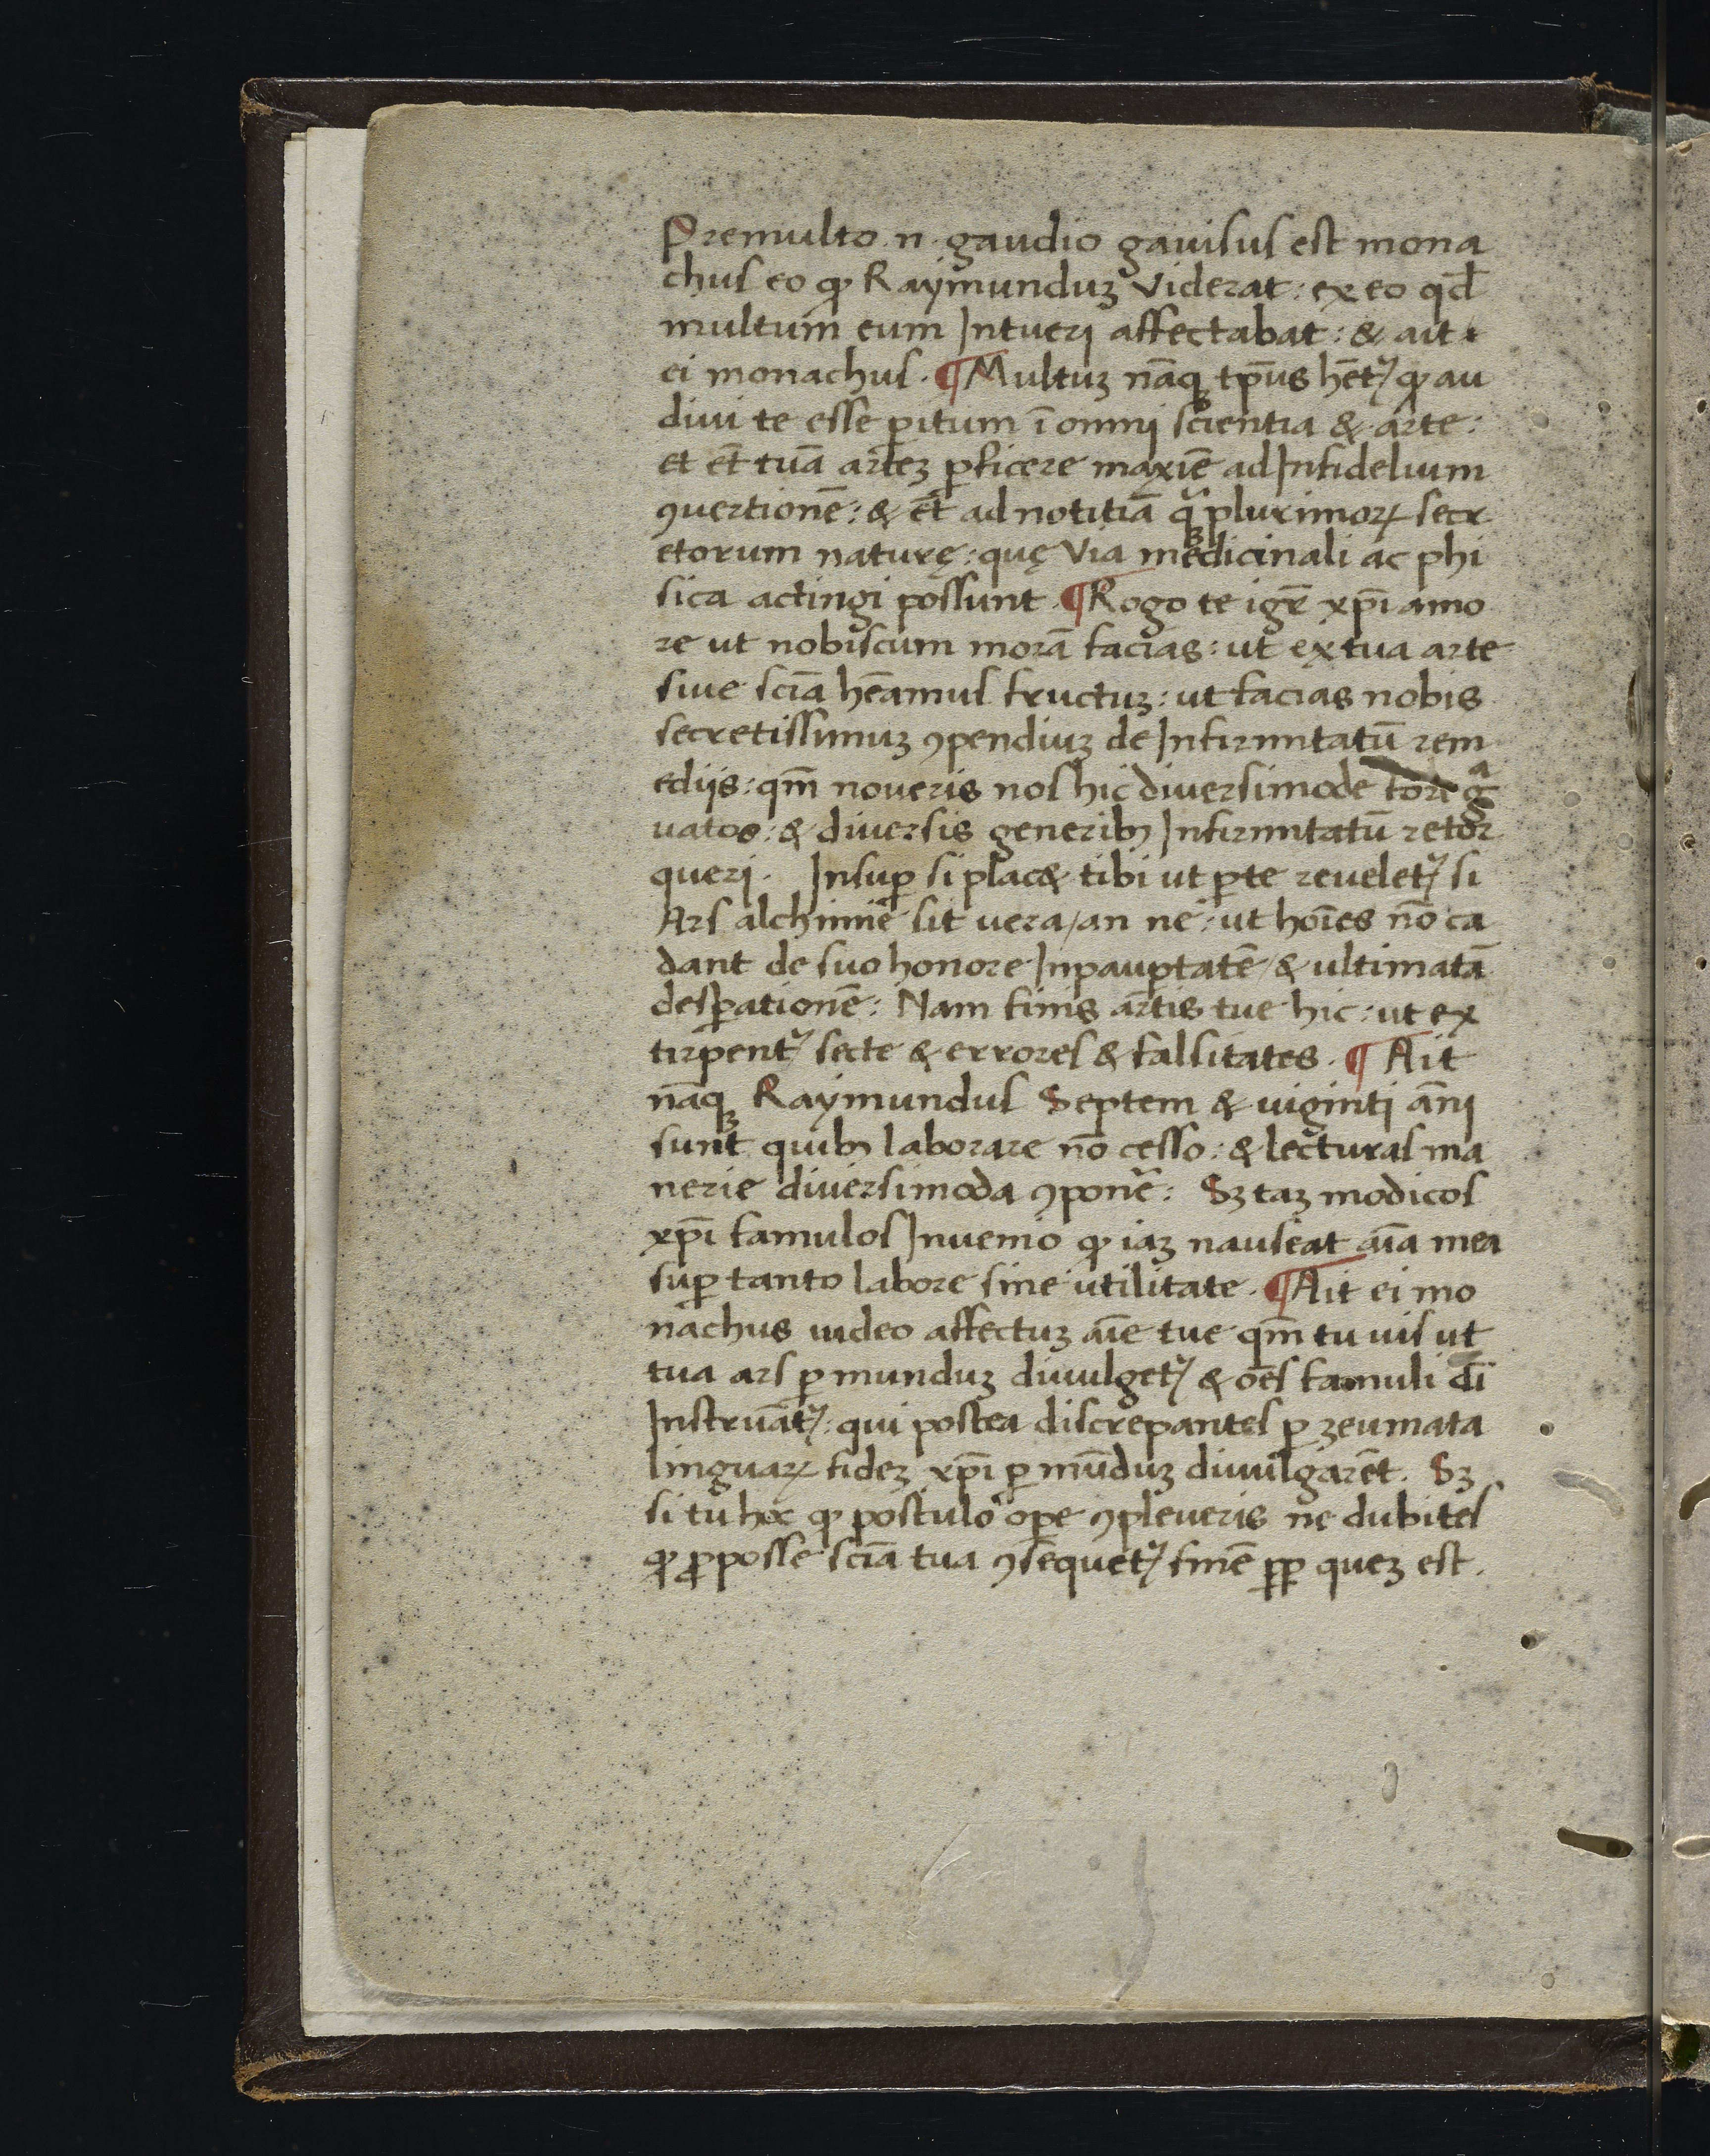 Premulto .n. gaudio gauisus est mona
chus eo ꝙ Raymunduꝫ Viderat: ex eo qđ
multum eum Intueri affectabat: & ait
ei monachus. ¶ Multuꝫ nāqꝫ tp̄us hēt᷑ ꝙ au
diui te esse ꝑitum ī omni scientia & arte:
et ēt tuā arteꝫ ꝓficere maxīe ad Infidelium
ꝯuertionē: & ēt ad notitiā qͣplurimoꝝ secr
etorum naturę: quę Via medicinali ac phi
sica actingi possunt. ¶ Rogo te igr̄ xp̄i amo
re ut nobiscum morā facias: ut ex tua arte
siue sciā hēamus fructuꝫ: ut facias nobis
secretissimuꝫ ꝯpendiuꝫ de Infirmitatū rem
ediis: qm̄ noueris nos hic diuersimode fore gͣ
uatos: & diuersis generibꝫ Infirmitatū retor
queri. Insuꝑ si plac& tibi ut ꝑ te reuelet᷑ si
Ars alchimie sit uera/an ne: ut hoīes nō ca
dant de suo honore Inpauꝑtatē/& ultimatā
desꝑationē: Nam finis artis tue hic: ut ex
tirpent᷑ secte & errores & falsitates. ¶ Ait
nāqꝫ Raymundus Septem & uiginti anni
sunt quibꝫ laborare nō cesso: & lecturas ma
nerie diuersimoda ꝯponē: Sꝫ taꝫ modicos
xp̄i famulos Inuenio ꝙ iaꝫ nauseat aīa mea
suꝑ tanto labore sine utilitate. ¶ Ait ei mo
nachus uideo affectuꝫ aīe tue qm̄ tu uis ut
tua ars ꝑ munduꝫ diuulget᷑ & oēs famuli dī
Instruāt᷑: qui postea discrepantes ꝑ zeumata
linguaꝝ fideꝫ xp̄i ꝑ mūduꝫ diuulgarēt. Sꝫ
si tu hoc ꝙ postulo oꝑe ꝯpleueris ne dubites
ꝙ ꝓposse sciā tua ꝯsequet᷑ finē ꝓꝑ queꝫ est.